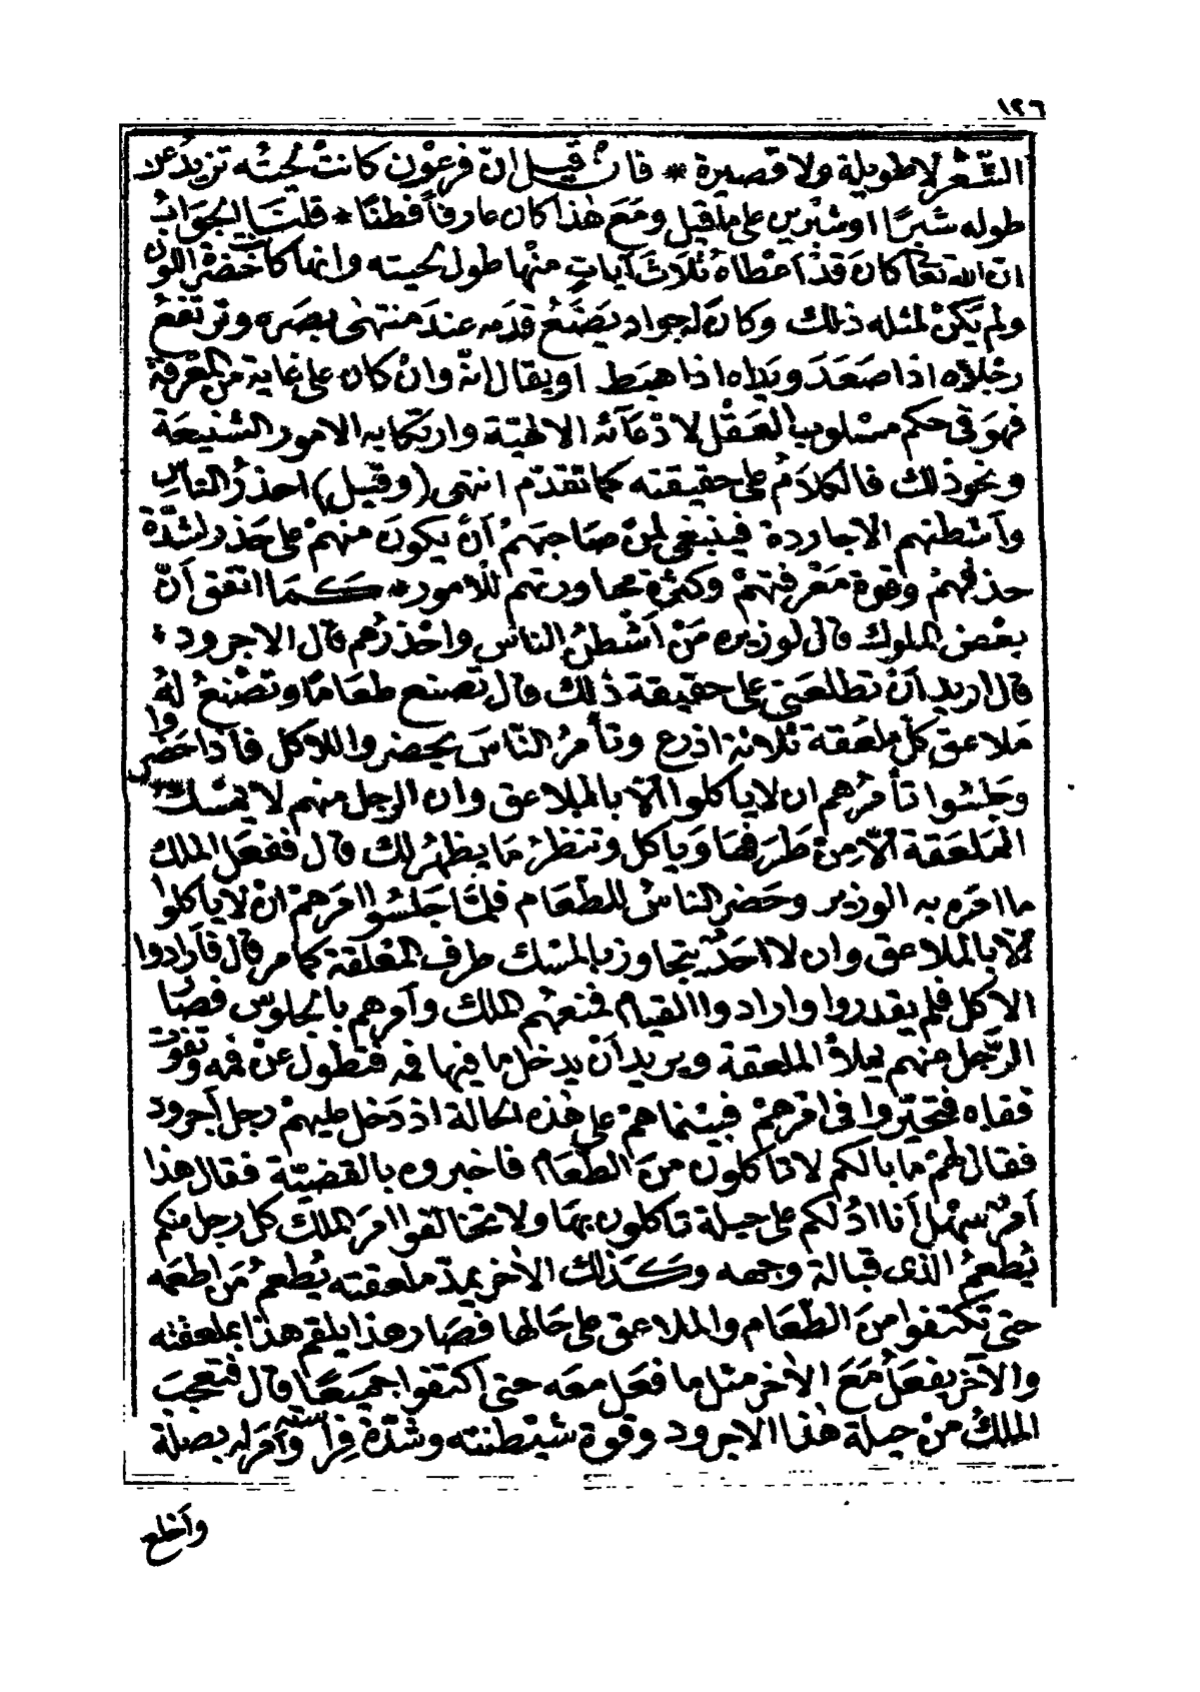 ١٢٦
الشَّعْر لا طويلة ولا قصيرة * فانْ قيل انّ فرعوْن كانتْ لحيتُه تزيدُ عن
طوله شبرًا او شبْرين على ما قيل ومَعَ هٰذا كان عارفاً فطنًا * قلنَا الجوَابُ
انّ الله تعَالى كانَ قدْ اعْطاهُ ثلاثَ آياتٍ منْها طول لحيته وانها كانت خضْرَ اللون
ولم يكنْ لمثله ذلك وكانَ له جواد يَضَعُ قدمه عندَ منتهى بصَره وترتفعُ
رجْلاه اذا صَعَدَ ويَداه اذا هبَط او يقال انّه وانْ كان على غاية من المعْرفة
فهوَ فى حكم مسْلوب العَقْل لادّعَآئه الالٰهيّة وارتكابه الامور الشنيعَة
ونحْو ذلك فالكلاَمُ على حقيقته كما تقدّم انتهى (وقيل) احذرُ الناس
وآشطنهم الاجاردة فينبغى لمنْ صَاحبَهمْ أنْ يكونَ منهمْ على حَذر لشدَّة
حذقهمْ وقوة مَعْرفتهمْ وكثرة محاورتهم للامور * كَمَا اتفق أنّ
بعْضَ الملوك قال لوزيره مَنْ اشْطنُ الناس واحْذرُهم قال الاجرود *
قال اريد أنْ تطلعَنى على حقيقة ذٰلك قال تصنع طعَامًا وتصْنعُ لهُ
مَلاعق كلّ ملعَقة ثلاثة اذرع وتأمرُ النّاسَ يحضروا للاكل فاذا حَضروا
وجَلسُوا تأمرُهم ان لا يأكلوا الّا بالملاعق وان الرجل منهم لا يمْسك
المَلعَقة الّا منْ طَرَفهَا وَيأكل وتنظرُ مَا يظهرُ لك قال ففعَل الملك
ما امَره به الوزير وحَضر الناسُ للطعَام فلمّا جَلسُوا امَرهمْ انْ لا يأكلوا
الّا بالملاعق وان لا احَدٌ يتجاوز بالمسْك طرف المعْلقة كما مر قال فأرادوا
الاكل فلم يقدروا وارادوا القيام فمنعهُم الملك وآمرهم بالجلوس فصَارَ
الرّجل منهم يملأُ الملعقة ويريد أنْ يدخل ما فيها فمه فتطول عنْ فمه وتفوت
قفاه فتحيّروا فى امرهمْ فبيْنما همْ على هٰذه الحالة اذ دَخل عليهمْ رجل أجرود
فقال لهمْ ما بالكم لا تاكلون منَ الطّعَام فاخبروه بالقضيّة فقال هذا
أمرٌ سهْل أنا ادُلكم على حيلة تأكلون بهَا ولا تخالفوا امرَ الملك كل رجل منكم
يُطعمُ الذى قبالة وجهه وكَذٰلك الاٰخر يمدّ ملعقته يُطعمُ مَن اطعمَه
حتى تكتفوا منَ الطّعَام والملاعق على حَالها فصَار هذا يلقم هذا بملعقته
والآخر يفعَلُ مَعَ الاٰخر مثل ما فعَل معَه حتى اكتفوا جميعًا قال فتعجبَ
الملكُ منْ حيلة هٰذا الاجرود وقوة شيْطنته وشدّة فراسته وآمر له بصلة
وآخلع